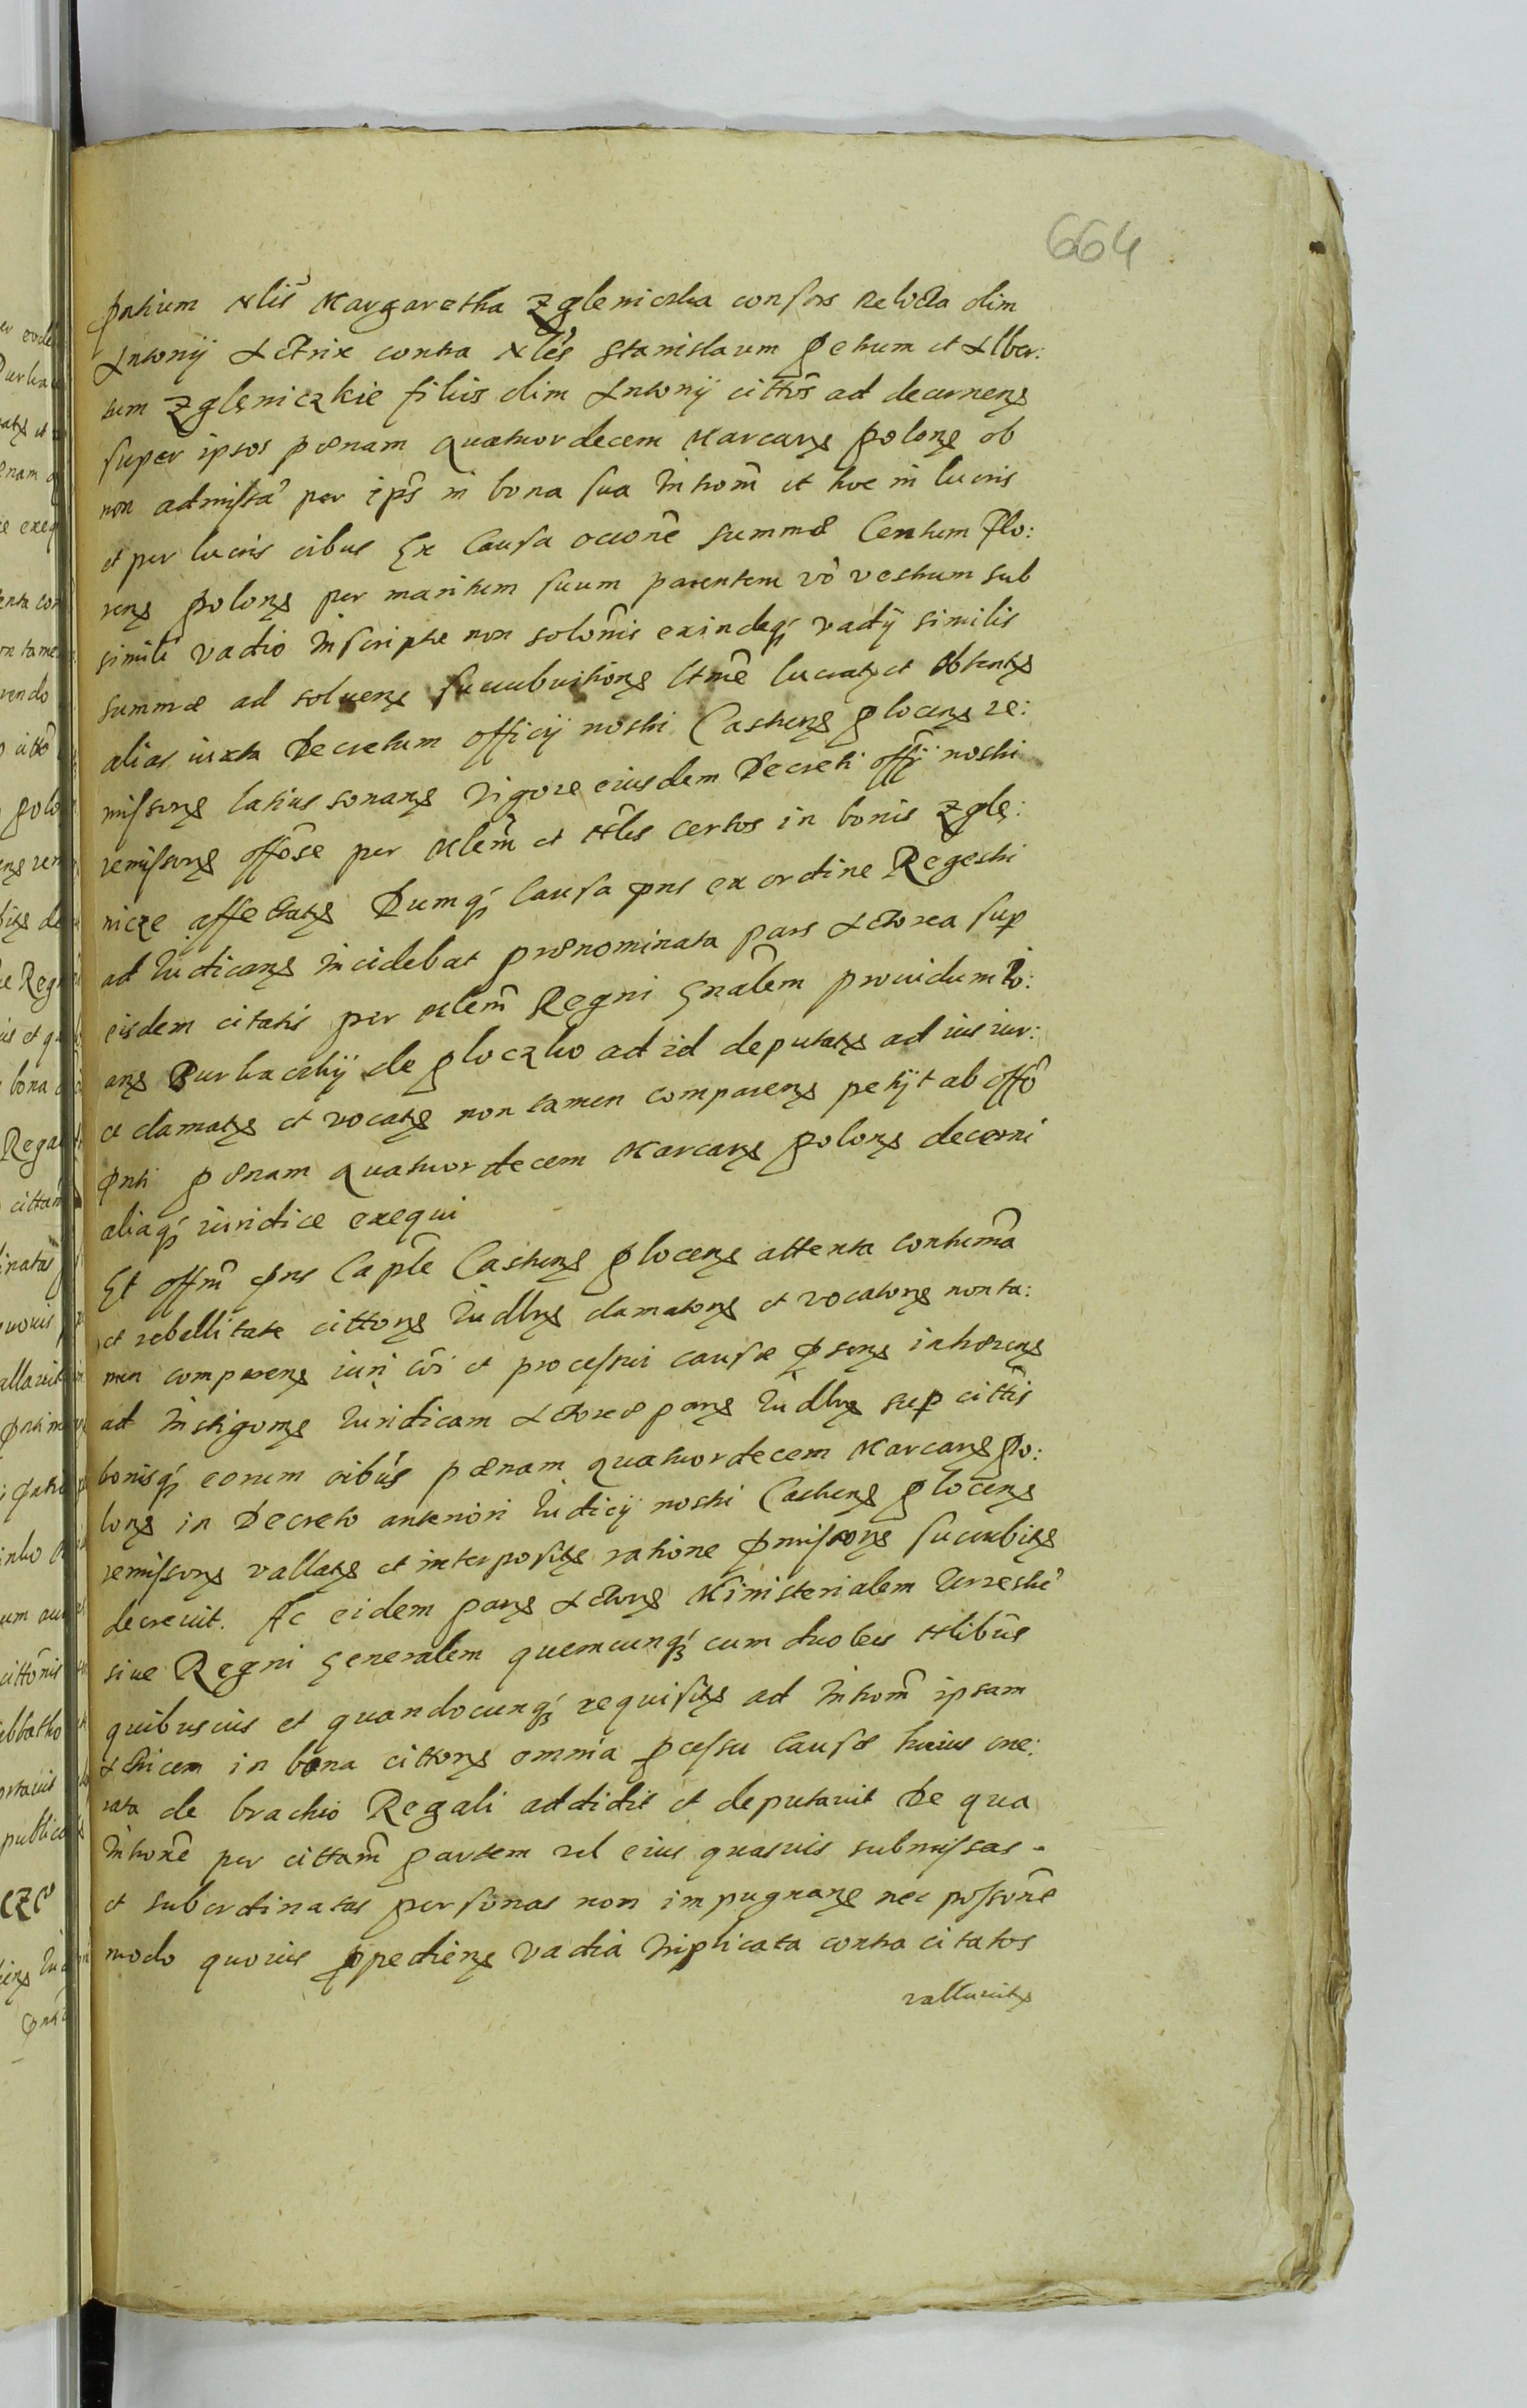 664
pntium Nlis Margaretha Zgleniczka consors Relicta olim
Antonij Actrix contra Nles Stanislaum Petrum et Alber:
tum Zgleniczkie filios olim Antonij cittos ad decernens
super ipsos poenam quatuordecem Marcars polons ob
non admissa per ips in bona sua Introm et hoc in lucris
et per lucris oibus Ex Causa occone summæ Centum flo:
rens polons per maritum suum parentem vo vestrum sub
simili vadio Inscriptæ non solonis exindeq vadij similis
summæ ad solvens succubuitions Itme lucrats et obtents
alias iuxta Decretum officij nostri Castrens Plocens re:
missons latius sonans vigore eiusdem Decreti offij nostri
remissons offose per Mlem et Nles certos in bonis Zgle:
nicze affectats Dumq Causa pns ex ordine Regestri
ad Iudicans incidebat prænominata pars Actorea sup
eisdem citatis per Mlem Regni Gnalem providum Io:
ans Burkaczkij de Ploczko ad id deputats ad ius iur:
ce clamats et vocats non tamen comparens petijt ab offo
pnti poenam quatuordecem Marcars polons decerni
aliaq iuridice exequi
Et offm pns Caple Castrens Plocens attenta contuma
et rebellitate cittons Iudlrs clamatons et vocatons non ta:
men comparens iuri coi et processui causæ psens inhærens
ad Instigoms Iuridicam Actoreæ pars Iudlrs sup cittis
bonisq eorum oibus poenam quatuordecem Marcars Po:
lons in Decreto anteriori Iudicij nostri Castrens Plocens
remissons vallats et interposits ratione pmissons succubits
decrevit. Ac eidem pars Actors Ministerialem terrestre
sive Regni Generalem quemcunq cum duobus Nlibus
quibusvis et quandocunq requisits ad Introm ipsam
Actricem in bona cittons omnia pcessu Causæ huius one:
rata de brachio Regali addidit et deputavit De qua
Introne per cittam partem vel eius quasvis submissas
et subordinatas personas non impugnans nec possone
modo quovis ppediens vadia triplicata contra citatos
vallavits